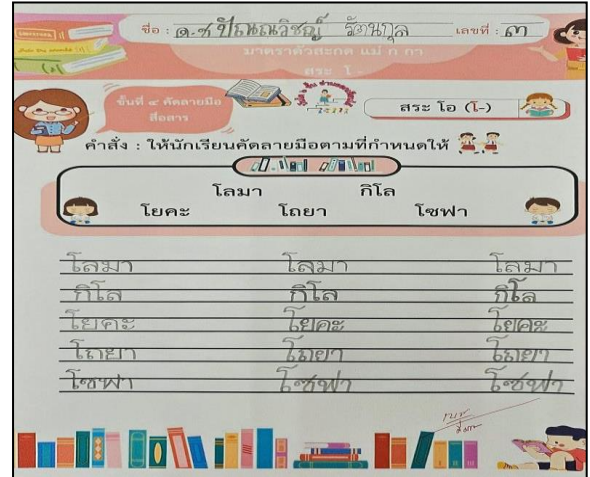 ชื่อ : ด.ช ปัณณวิชญ์ รัตนกุล เลขที่ : ๓
มาตราตัวสะกด แม่ ก กา
สระ โ -
ขั้นที่ ๔ คัดลายมือ
สื่อสาร
สระ โอ (โ-)
คำสั่ง : ให้นักเรียนคัดลายมือตามที่กำหนดให้
โลมา กิโล
โยคะ โถยา โซฟา
โลมา โลมา โลมา
กิโล กิโล กิโล
โยคะ โยคะ โยคะ
โถยา โถยา โถยา
โซฟา โซฟา โซฟา